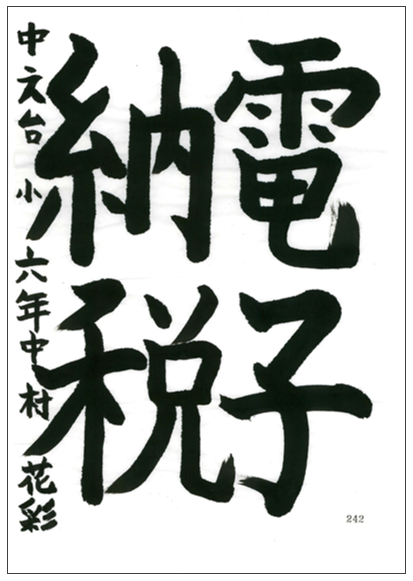 電子
納税
中文台小六年中村花彩
242